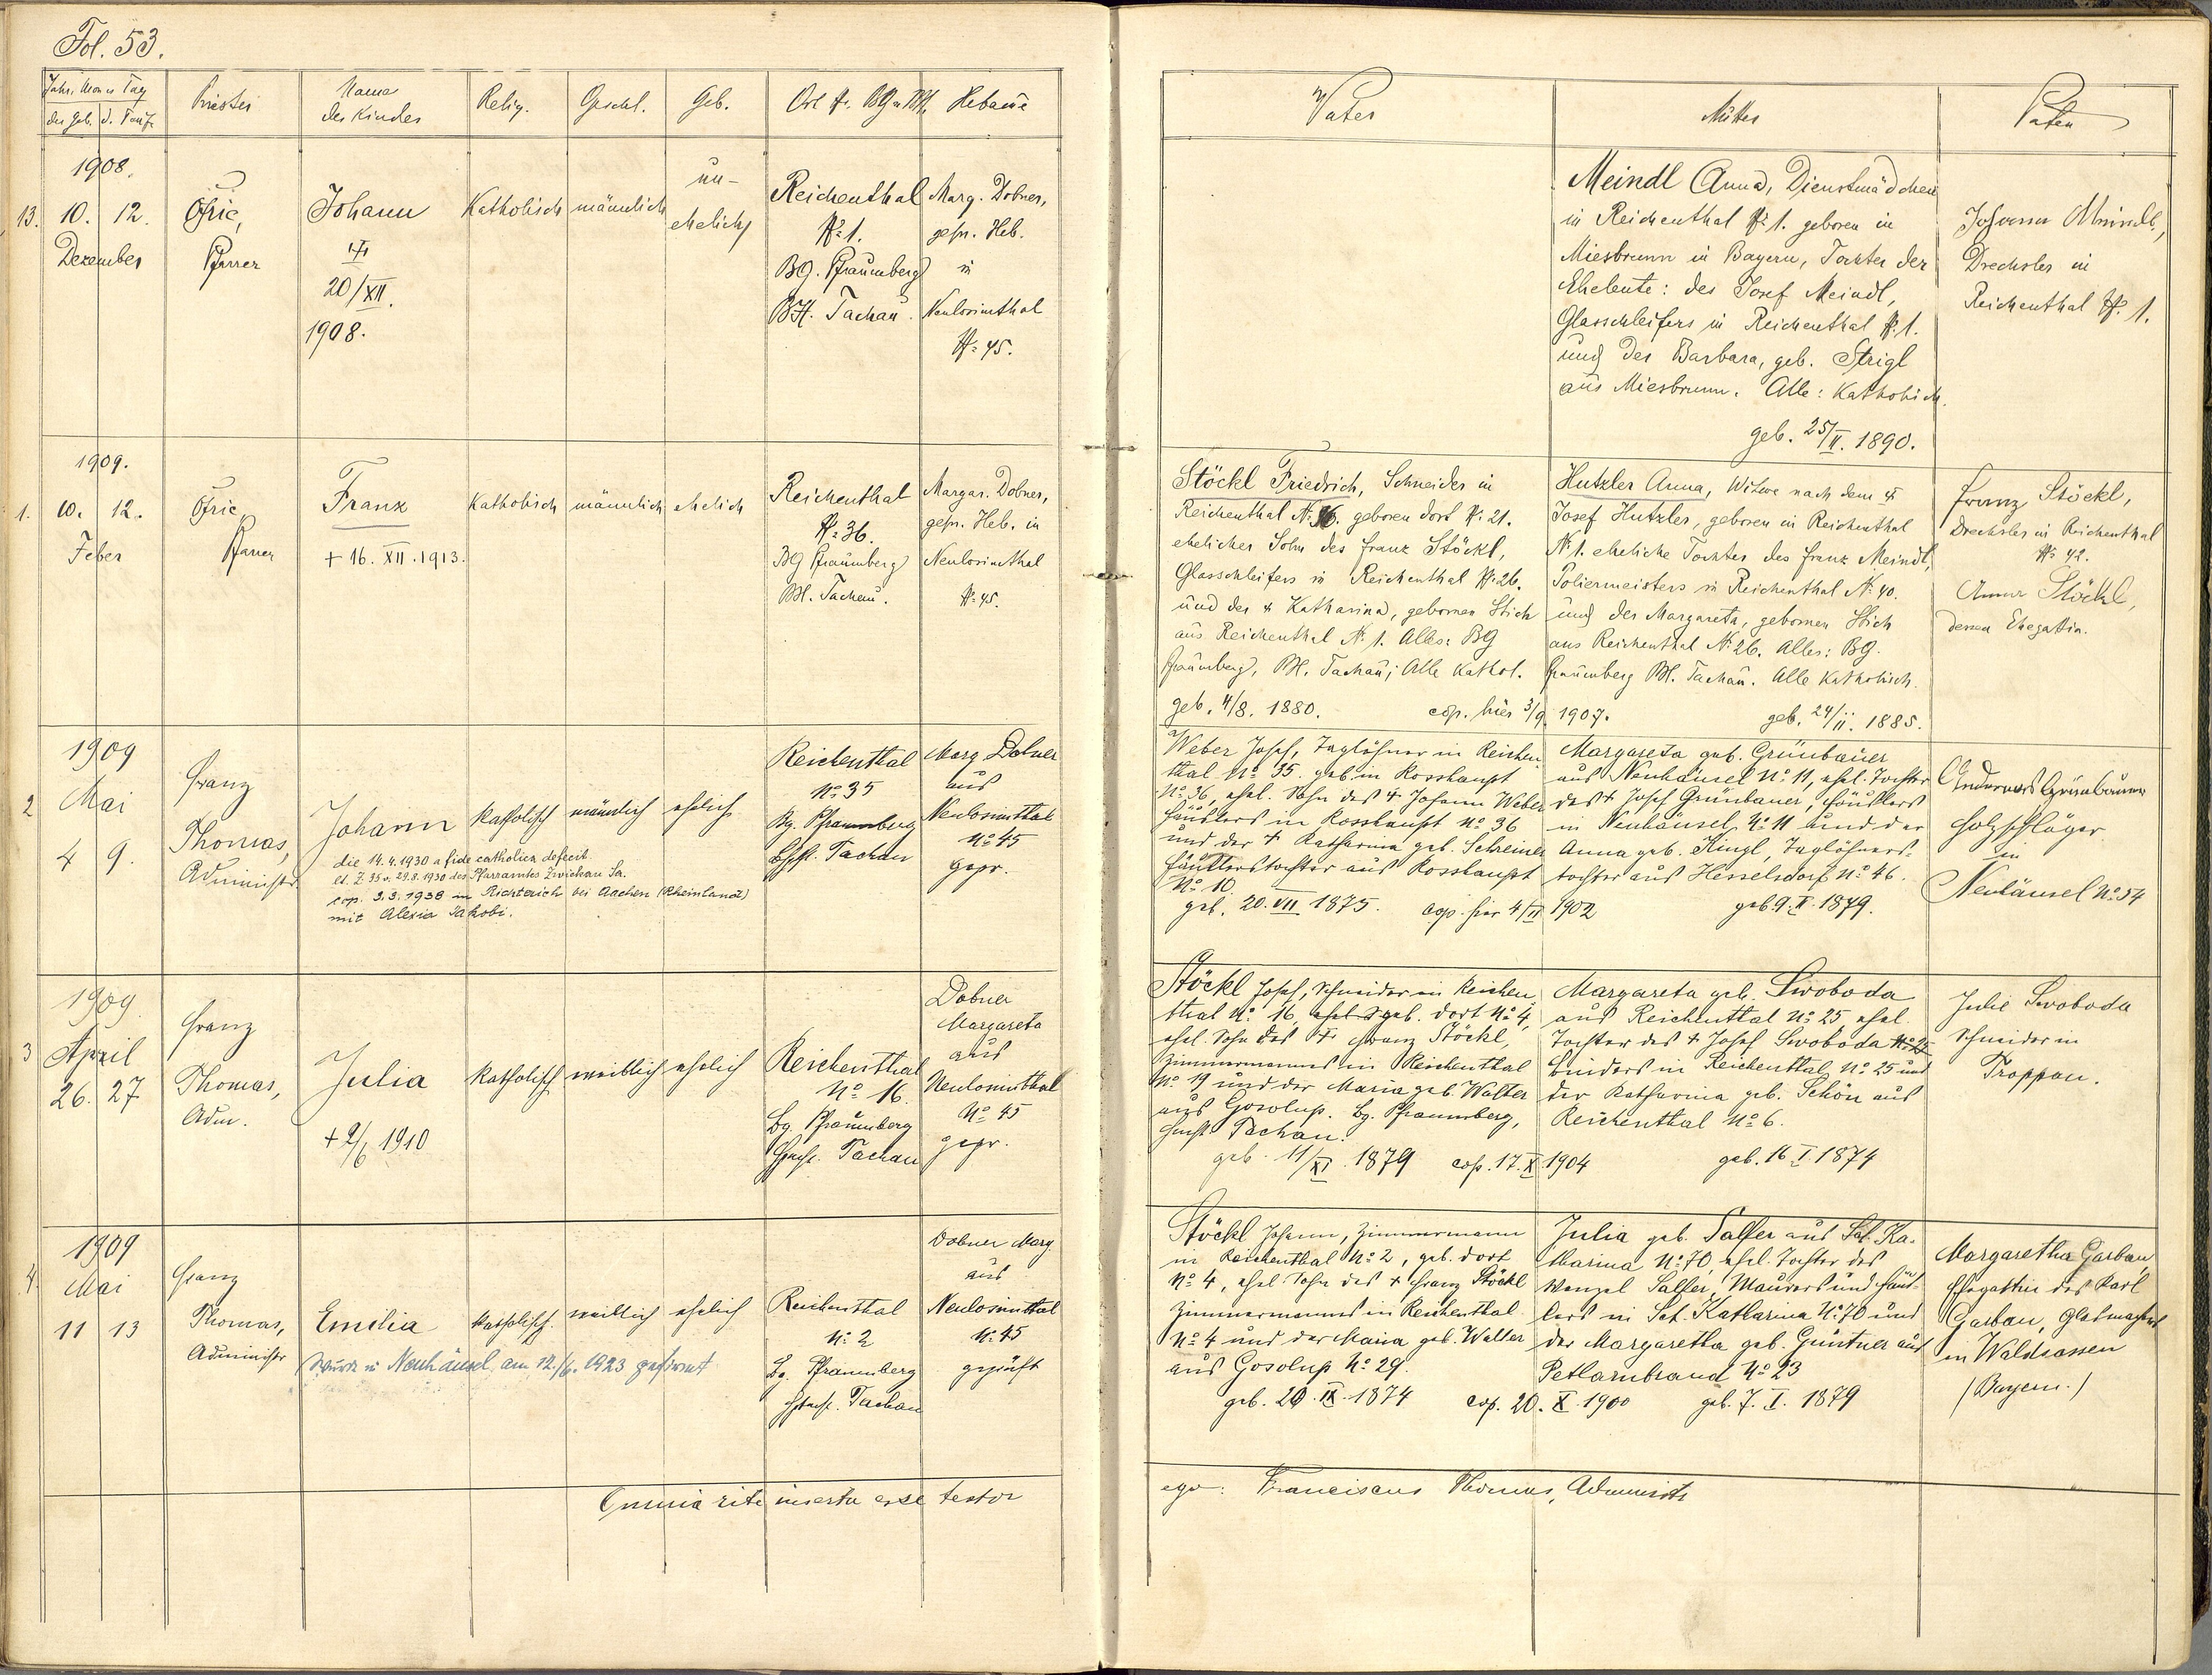 Fol. 53.
Jahr, Mon u Tag
der Geb. d. Taufe
Priester
Name
des Kindes
Relig.
Geschl.
Geb.
Ort № BG u BH,
Hebame
Vater
Mutter
Paten
1908.
13. 10. 12.
Dezember
Ofric,
Pfarrer
Johann
†
20/XII.
1908.
Katholisch
männlich
un-
ehelich
Reichenthal
№ 1.
BG. Pfraumberg
BH. Tachau.
Marg. Dobner,
gepr. Heb.
in
Neulosimthal
№ 45.
Meindl Anna, Dienstmädchen
in Reichenthal № 1. geboren in
Miesbrunn in Bayern, Tochter der
Eheleute: des Josef Meindl,
Glasschleifers in Reichenthal № 1.
und der Barbara, geb. Strigl
aus Miesbrunn. Alle: Katholisch.
geb. 25/II. 1890.
Johann Meindl,
Drechsler in
Reichenthal № 1.
1909.
1. 10. 12.
Feber
Ofric
Pfarrer
Franz
+ 16. XII. 1913.
Katholisch
männlich
ehelich
Reichenthal
№ 36.
BG Pfraumberg
BH. Tachau.
Margar. Dobner,
gepr. Heb. in
Neulosimthal
№ 45.
Stöckl Friedrich, Schneider in
Reichenthal № 36. geboren dort № 21.
ehelicher Sohn des Franz Stöckl,
Glasschleifers in Reichenthal № 26.
und der † Katharina, gebornen Stich
aus Reichenthal № 1. Alles: BG
Pfraumberg, BH. Tachau; Alle Kathol.
geb. 4/8. 1880. cop. hier 3/9. 1907.
Hutzler Anna, Witwe nach dem †
Josef Hutzler, geboren in Reichenthal
№ 1. eheliche Tochter des Franz Meindl,
Poliermeisters in Reichenthal № 40.
und der Margareta, gebornen Stich
aus Reichenthal № 26. Alles: BG.
Pfraumberg BH. Tachau. Alle Katholisch.
geb. 24/11. 1885.
Franz Stöckl,
Drechsler in Reichenthal
№ 42.
Anna Stöckl,
dessen Ehegattin.
1909
2 Mai
4 9.
Franz
Thomas,
Administr.
Johann
die 14. 4. 1930 a fide catholica defecit.
et. Z 35 v. 29.8.1930 des Pfarramtes Zwickau Sa.
cop. 3.3.1938 in Richterich bei Aachen (Rheinland)
mit Alexia Jakobi.
katholisch
männlich
ehelich
Reichenthal
№ 35
Bg. Pfraumberg
Bhft. Tachau
Marg Dobner
aus
Neulosimthal
№ 45
gepr.
Weber Josef, Taglöhner in Reichen
thal № 35. geb. in Rosshaupt
№ 36, ehel. Sohn des † Johann Weber
Häuslers in Rosshaupt № 36
und der † Katharina geb. Schreiner
Häuslerstochter aus Rosshaupt
№ 10
geb. 20. VII 1875. cop. hier 4/II 1902
Margareta geb. Grünbauer
aus Neuhäusel № 11, ehel. Tochter
des † Josef Grünbauer, Häuslers
in Neuhäusel № 11 und der
Anna geb. Kingl, Taglöhners-
tochter aus Hesselsdorf № 46.
geb. 9. II. 1879.
Andreas Grünbauer
Holzschläger
in
Neuhäusel № 54
1909
3 April
26. 27
Franz
Thomas,
Adm.
Julia
+ 2/6 1910
katholisch
weiblich
ehelich
Reichenthal
№ 16.
Bg. Pfraumberg
Hptsch. Tachau
Dobner
Margareta
aus
Neulosimthal
№ 45
gepr.
Stöckl Josef, Schneider in Reichen
thal № 16 ehel. S geb. dort № 4,
ehel. Sohn des † Franz Stöckl,
Zimmermannes in Reichenthal
№ 19 und der Maria geb. Walter
aus Gosolup. Bg. Pfraumberg,
Hptsch Tachau.
geb. 11/XI. 1879 cop. 17. X. 1904
Margareta geb. Swoboda
aus Reichenthal № 25 ehel.
Tochter des † Josef Swoboda № 25
Binders in Reichenthal № 25 und
der Katharina geb. Schön aus
Reichenthal № 6.
geb. 16 I. 1874
Julie Swoboda
Schneider in
Troppau.
1909
4. Mai
11 13
Franz
Thomas,
Administr
Emilia
Wurde in Neuhäusel am 12./6. 1923 gefirmt
katholisch.
weiblich
ehelich
Reichenthal
№ 2
Bg. Pfraumberg
Hptsch. Tachau
Dobner Marg
aus
Neulosimthal
№ 45
geprüft
Stöckl Johann, Zimmermann
in Reichenthal № 2, geb. dort
№ 4, ehel Sohn des † Franz Stöckl
Zimmermannes in Reichenthal
№ 4 und der Maria geb. Walter
aus Gosolup № 29.
geb. 20. IX. 1874 cop. 20. X. 1900
Julia geb. Salfer aus Sct. Ka-
tharina № 70, ehel. Tochter des
Wenzel Salfer, Maurers und Häus-
lers in Sct. Katharina № 70 und
der Margaretha geb. Güntner aus
Petlarnbrand № 23
geb. 7. I. 1879
Margaretha Garban,
Ehegattin des Karl
Garban, Glasmachers
in Waldsassen
(Bayern.)
Omnia rite inserta esse testor
ego: Franciscus Thomas, Administr